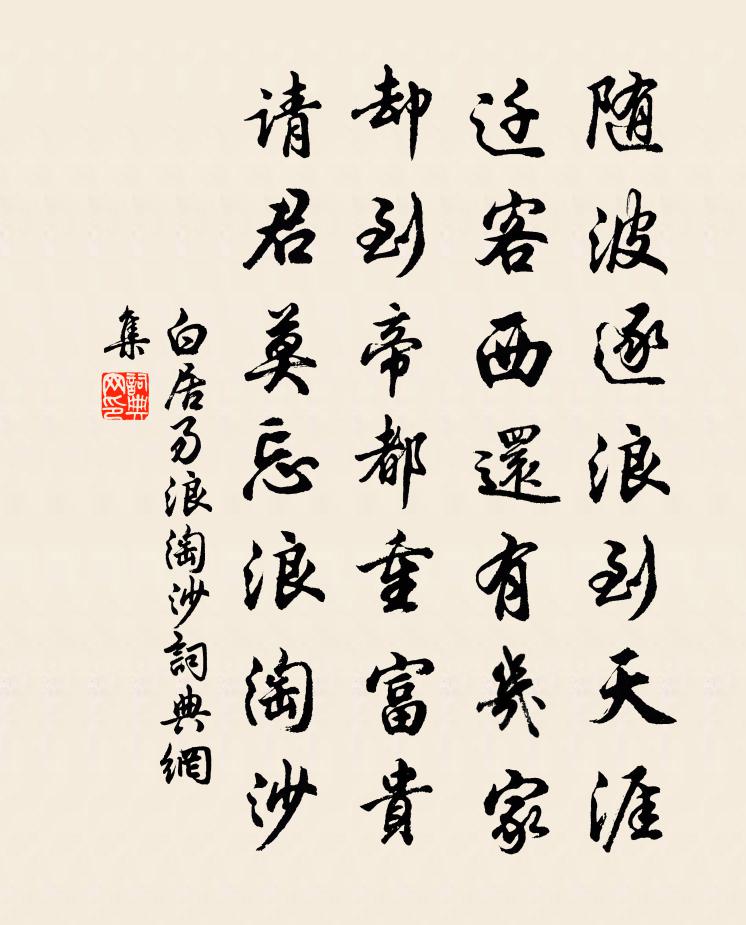 随波逐浪到天涯
迁客西還有幾家
却到帝都重富貴
请君莫忘浪淘沙
白居易浪淘沙詞典網
集
詞典网印